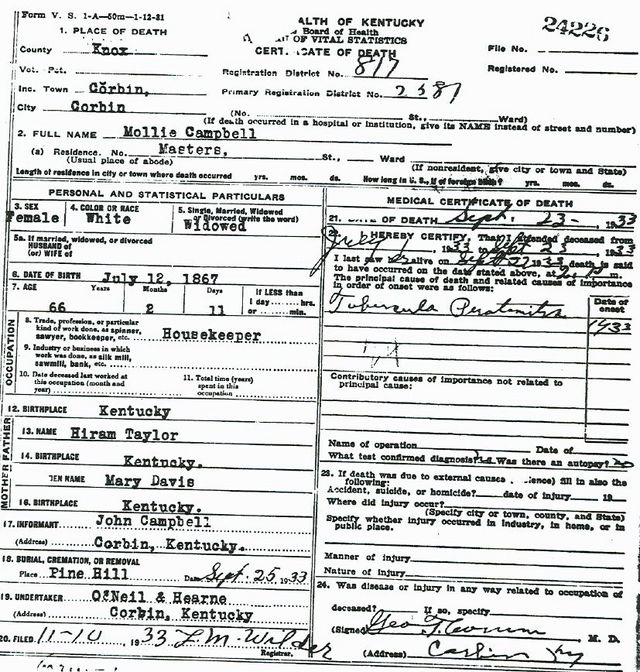 Form V. S. 1-A—50m—1-12-31
1. PLACE OF DEATH
County Knox
Vot. Pct.
Inc. Town Corbin,
City Corbin
ALTH OF KENTUCKY
Board of Health
OF VITAL STATISTICS
CERT CATE OF DEATH
Registration District No. 817
Primary Registration District No. 2381
24226
File No.
Registered No.
(No. St., Ward)
(If death occurred in a hospital or institution, give its NAME instead of street and number)
2. FULL NAME Mollie Campbell
(a) Residence. No. Masters, St., Ward
(Usual place of abode) (If nonresident, give city or town and State)
Length of residence in city or town where death occurred yrs. mos. ds. How long in U. S., if of foreign birth? yrs. mos. ds.
PERSONAL AND STATISTICAL PARTICULARS
3. SEX Female
4. COLOR OR RACE White
5. Single, Married, Widowed or Divorced (write the word) Widowed
5a. If married, widowed or divorced
HUSBAND of
(or) WIFE of
6. DATE OF BIRTH July 12, 1867
7. AGE Years Months Days If LESS than
66 2 11 1 day hrs. or min.
OCCUPATION
8. Trade, profession, or particular
kind of work done, as spinner,
sawyer, bookkeeper, etc. Housekeeper
9. Industry or business in which
work was done, as silk mill,
sawmill, bank, etc.
10. Date deceased last worked at
this occupation (month and
year)
11. Total time (years)
spent in this
occupation
12. BIRTHPLACE Kentucky
FATHER
13. NAME Hiram Taylor
14. BIRTHPLACE Kentucky.
MOTHER
DEN NAME Mary Davis
16. BIRTHPLACE Kentucky.
17. INFORMANT John Campbell
(Address) Corbin, Kentucky.
18. BURIAL, CREMATION, OR REMOVAL
Place Pine Hill Date Sept. 25 1933
19. UNDERTAKER O'Neil & Hearne
(Address) Corbin, Kentucky
20. FILED 11-10 1933 L. M. Wilder
Registrar.
MEDICAL CERTIFICATE OF DEATH
21. OF DEATH Sept. 23- 1933
I HEREBY CERTIFY, That I attended deceased from
1933 to Sept 23 1933
I last saw h alive on 1933 death is said
to have occurred on the date stated above, at m.
The principal cause of death and related causes of importance
in order of onset were as follows:
Date of
onset
1933
Contributory causes of importance not related to
principal cause:
Name of operation Date of
What test confirmed diagnosis? Was there an autopsy? no
23. If death was due to external causes lence) fill in also the
following:
Accident, suicide, or homicide? date of injury 19
Where did injury occur?
(Specify city or town, county, and State)
Specify whether injury occurred in industry, in home, or in
public place.
Manner of injury
Nature of injury
24. Was disease or injury in any way related to occupation of
deceased? If so, specify
(Signed) M. D.
(Address) Corbin Ky